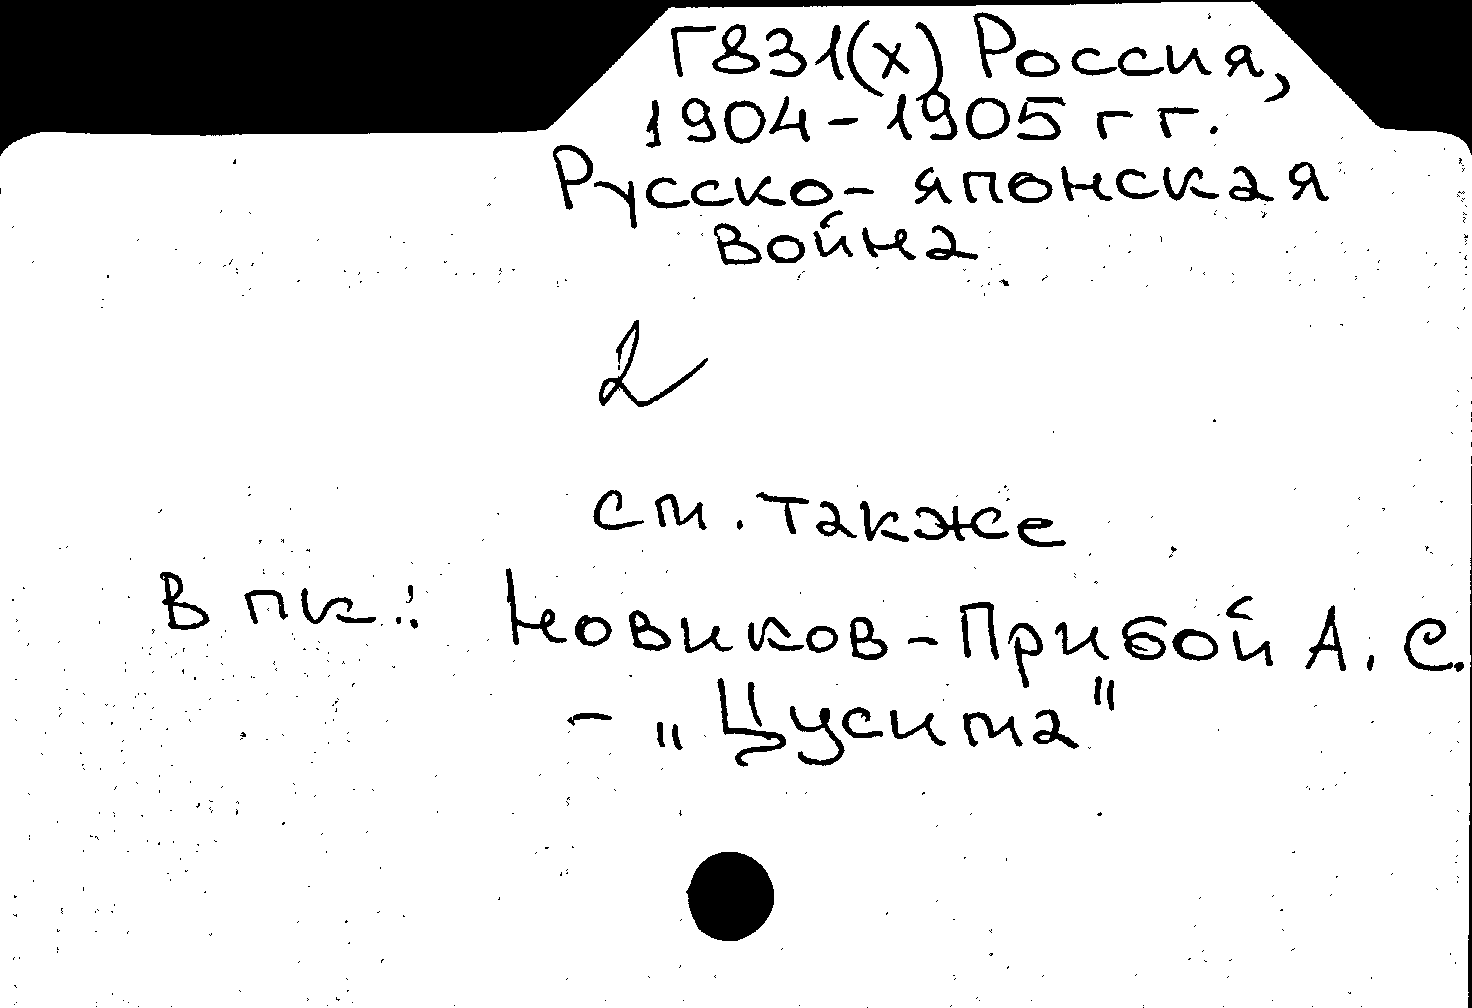 Г831(х) Россия,
1904-1905 гг.
Русско-японская
война
2
см. также
в пк.: Новиков-Прибой А. С.
- „Цусима"